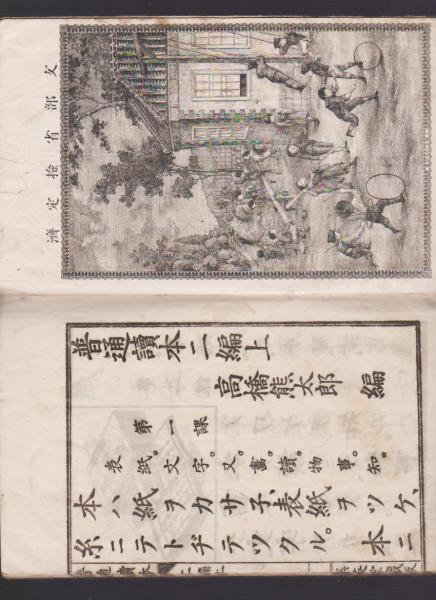 文部省檢定濟
普通讀本二編上
高橋熊太郎 編
第一課
表紙。文字。又。畫。讀。物事。知。
本ハ、紙ヲカサ子、表紙ヲツケ、
糸ニテトヂテツクル。本ニ